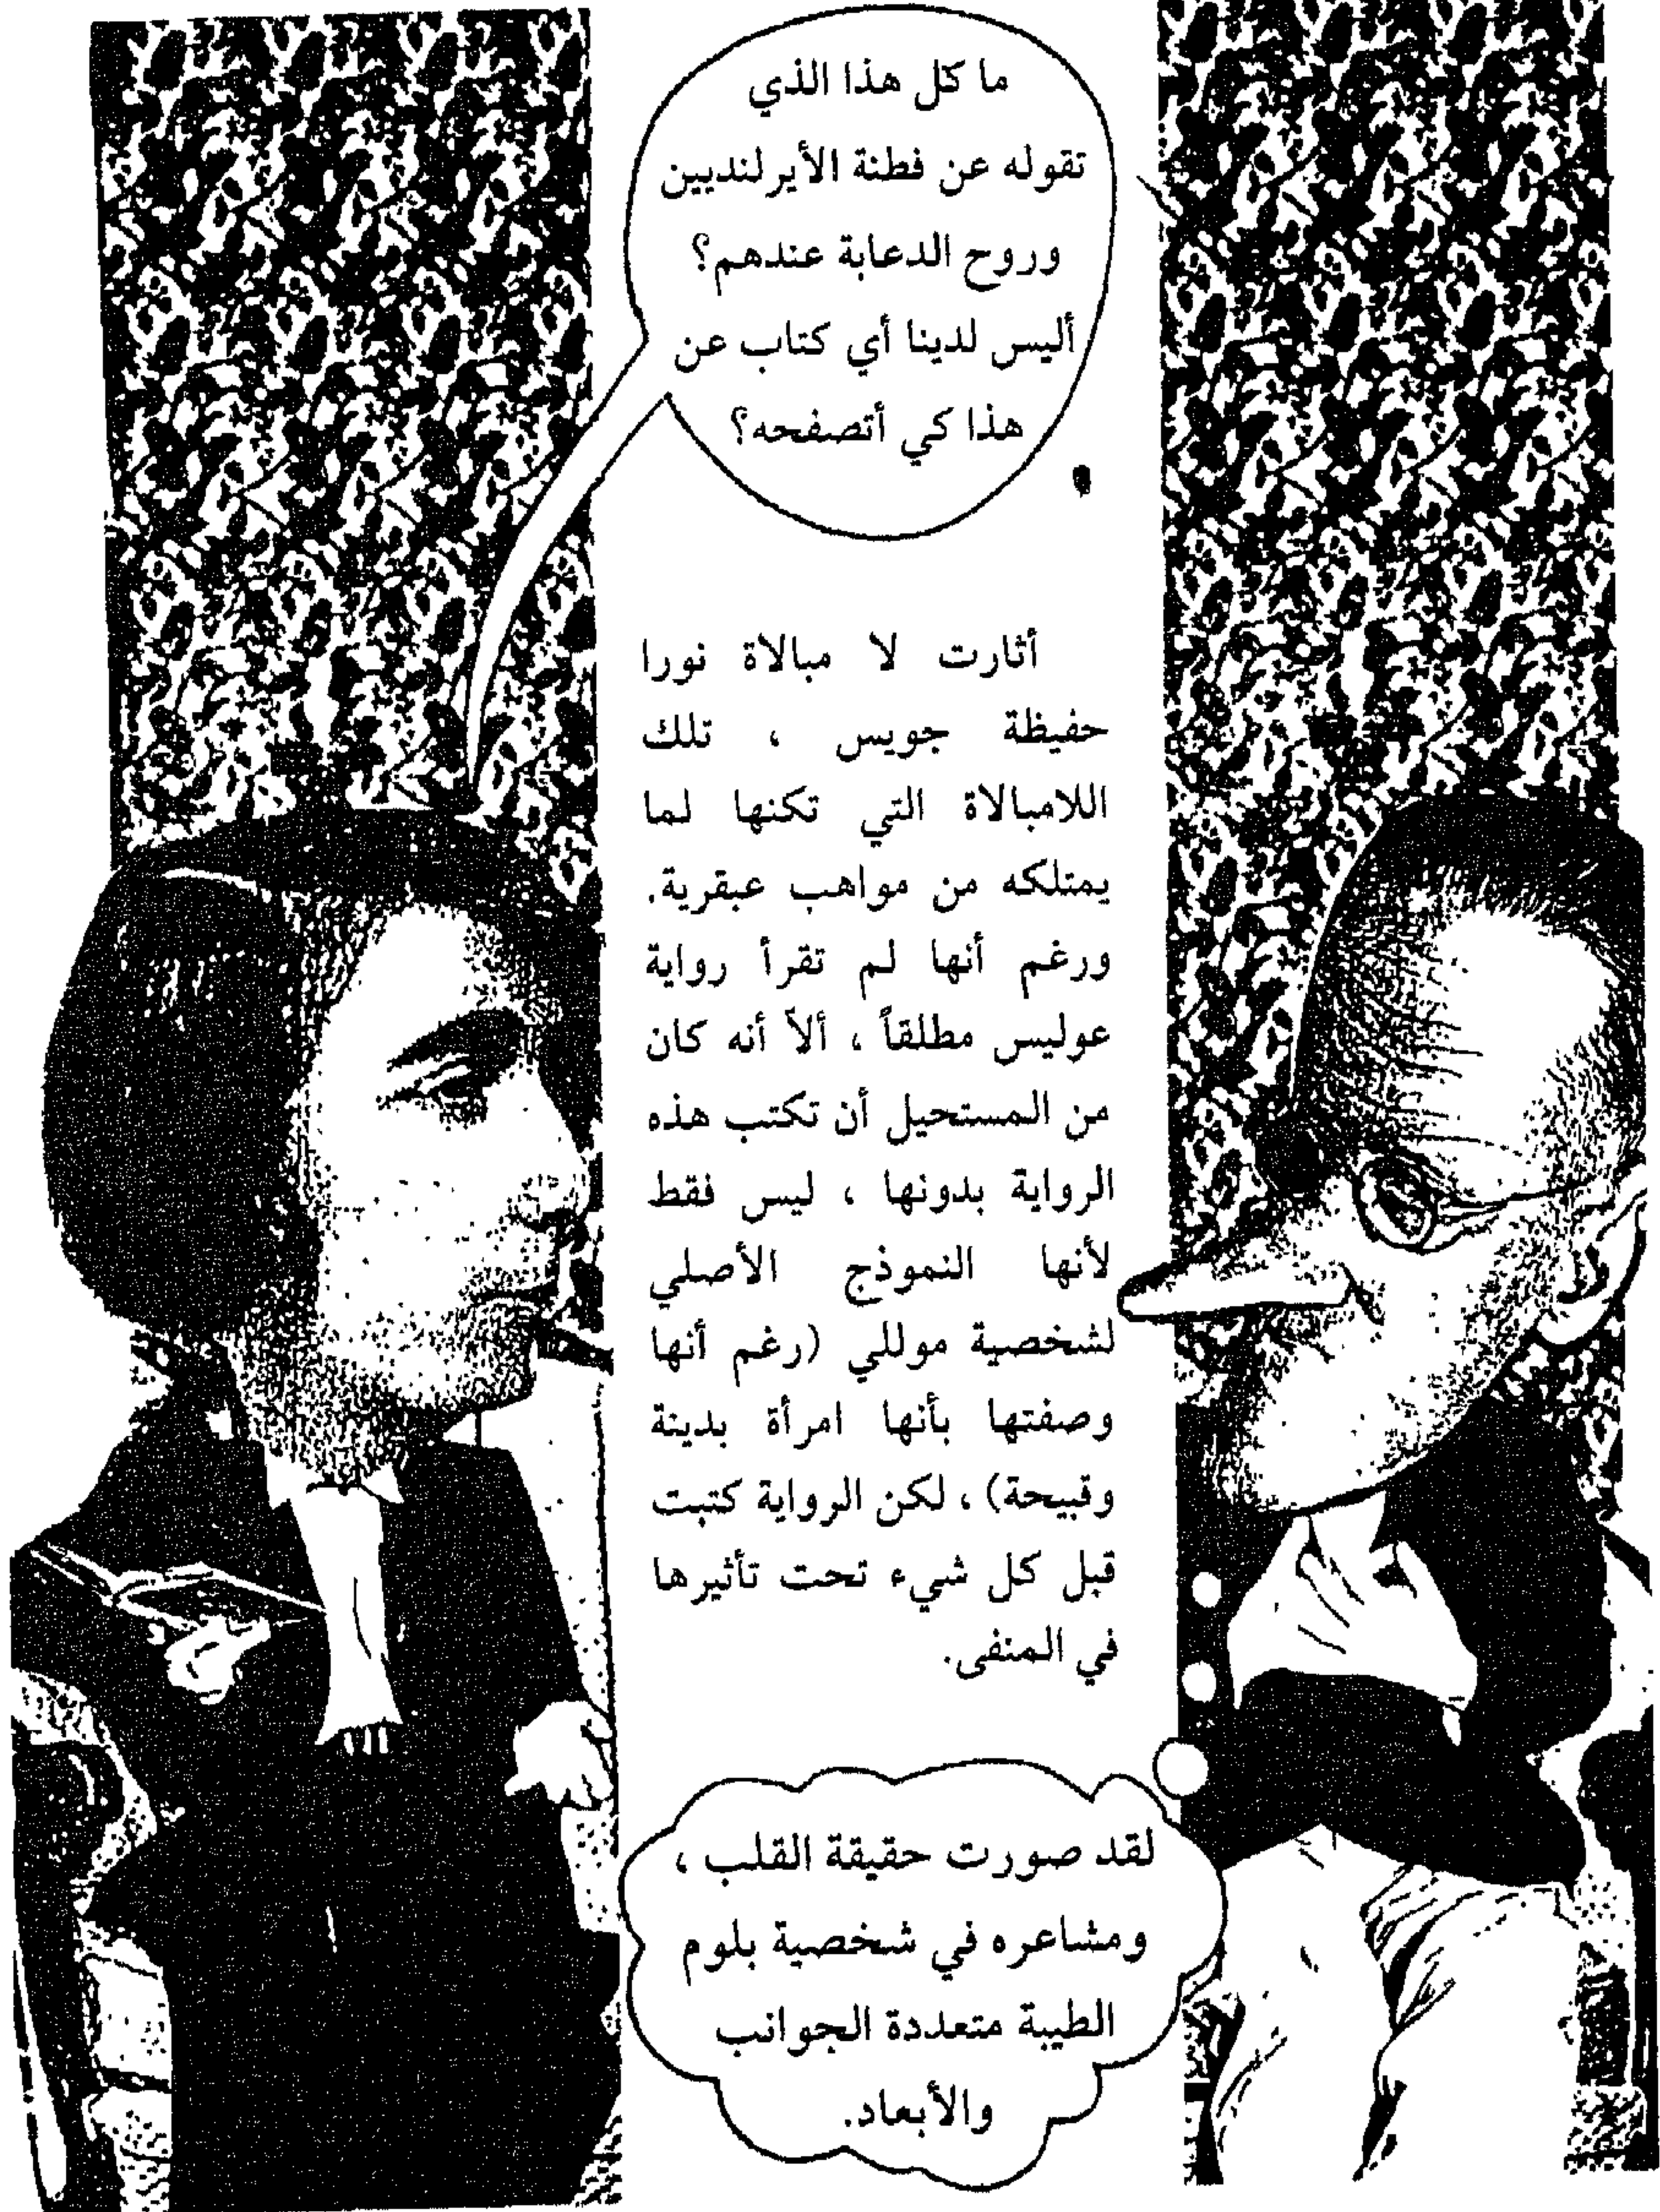 ما كل هذا الذي
تقوله عن فطنة الأيرلنديين
وروح الدعابة عندهم؟
أليس لدينا أي كتاب عن
هذا كي أتصفحه؟
أثارت لا مبالاة نورا
حفيظة جويس ، تلك
اللامبالاة التي تكنها لما
يمتلكه من مواهب عبقرية.
ورغم أنها لم تقرأ رواية
عوليس مطلقاً ، ألاّ أنه كان
من المستحيل أن تكتب هذه
الرواية بدونها ، ليس فقط
لأنها النموذج الأصلي
لشخصية موللي (رغم أنها
وصفتها بأنها امرأة بدينة
وقبيحة) ، لكن الرواية كتبت
قبل كل شيء تحت تأثيرها
في المنفى.
لقد صورت حقيقة القلب ،
ومشاعره في شخصية بلوم
الطيبة متعددة الجوانب
والأبعاد.